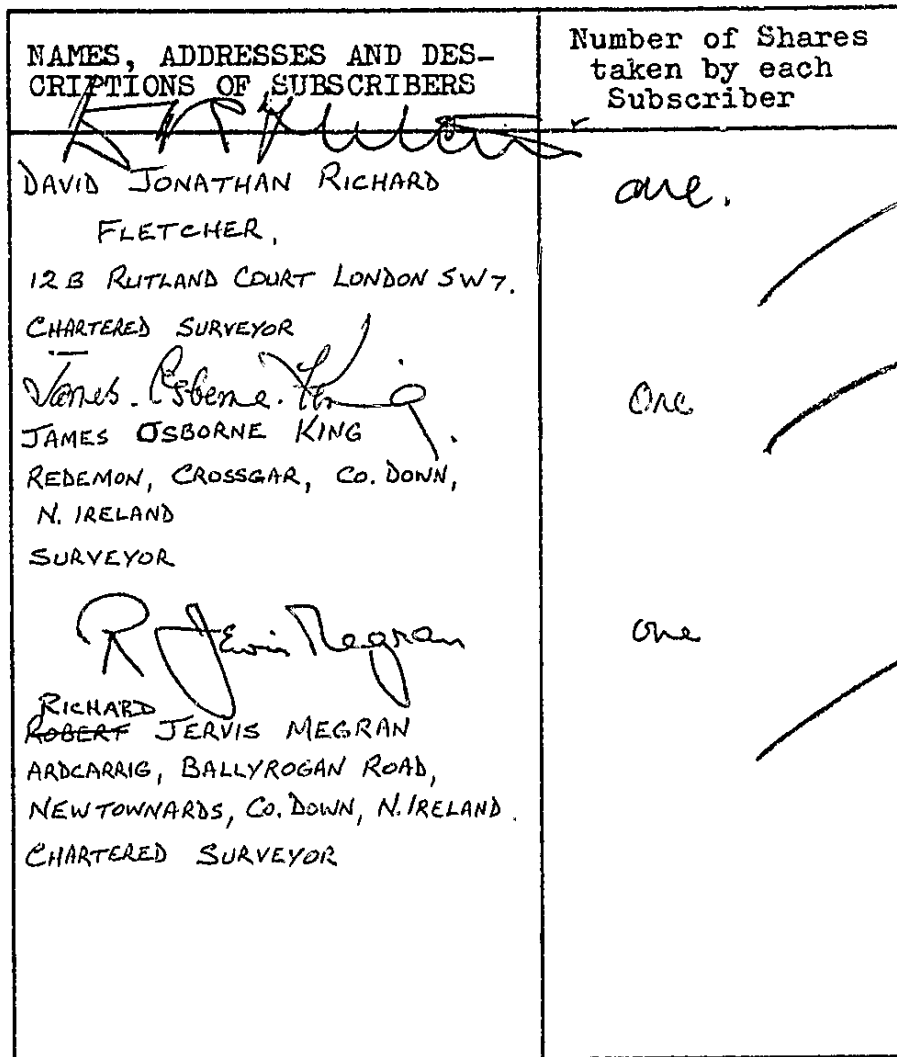 NAMES, ADDRESSES AND DES-
CRIPTIONS OF SUBSCRIBERS
Number of Shares
taken by each
Subscriber
DAVID JONATHAN RICHARD
FLETCHER,
one.
12B RUTLAND COURT LONDON SW7.
CHARTERED SURVEYOR
James Osborne King
One
JAMES OSBORNE KING
REDEMON, CROSSGAR, CO. DOWN,
N. IRELAND
SURVEYOR
R Jervis Megran
one
RICHARD
ROBERT JERVIS MEGRAN
ARDCARRIG, BALLYROGAN ROAD,
NEWTOWNARDS, CO. DOWN, N. IRELAND.
CHARTERED SURVEYOR